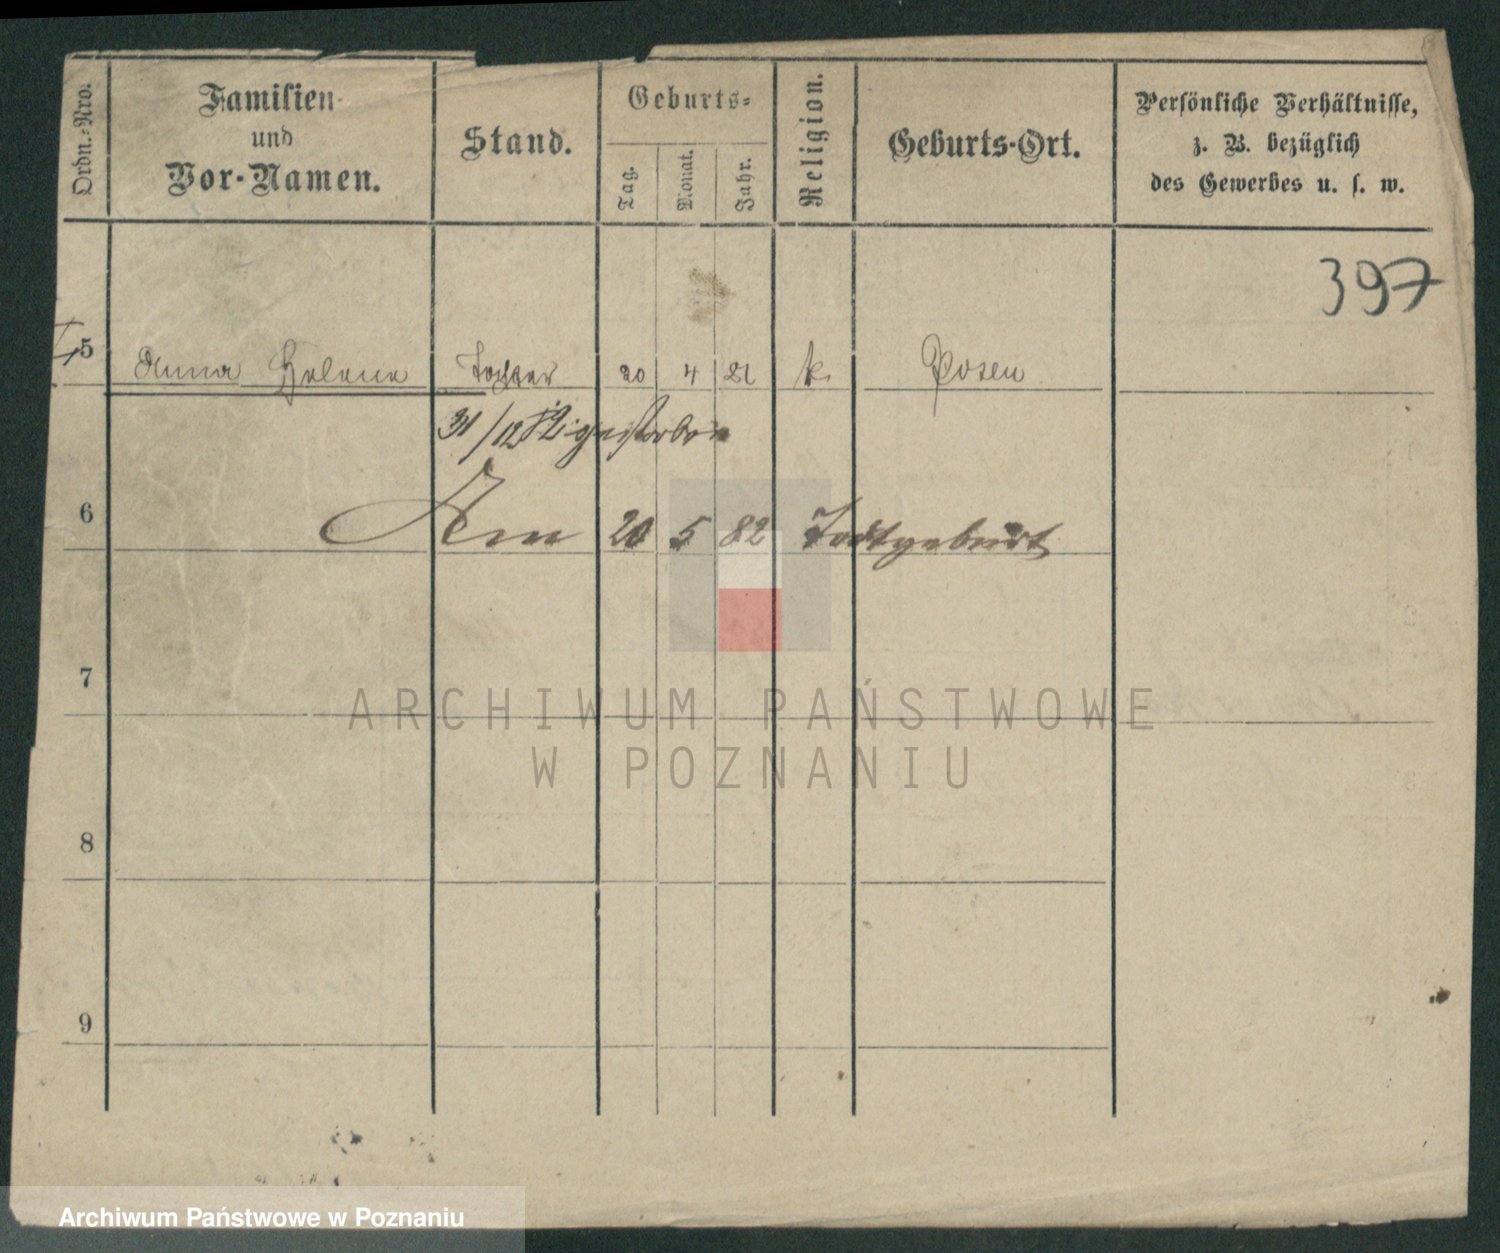 Ordn.-Nro.
Familien-
und
Vor-Namen.
Stand.
Geburts-
Tag.
Monat.
Jahr.
Religion.
Geburts-Ort.
Persönliche Verhältnisse,
z. B. bezüglich
des Gewerbes u. s. w.
397
5 Anna Helena Tochter 20 4 81 k. Posen
31/12 82 gestorben
6 Am 20 5 82 Todtgeburt
7
8
9
ARCHIWUM PAŃSTWOWE
W POZNANIU
Archiwum Państwowe w Poznaniu